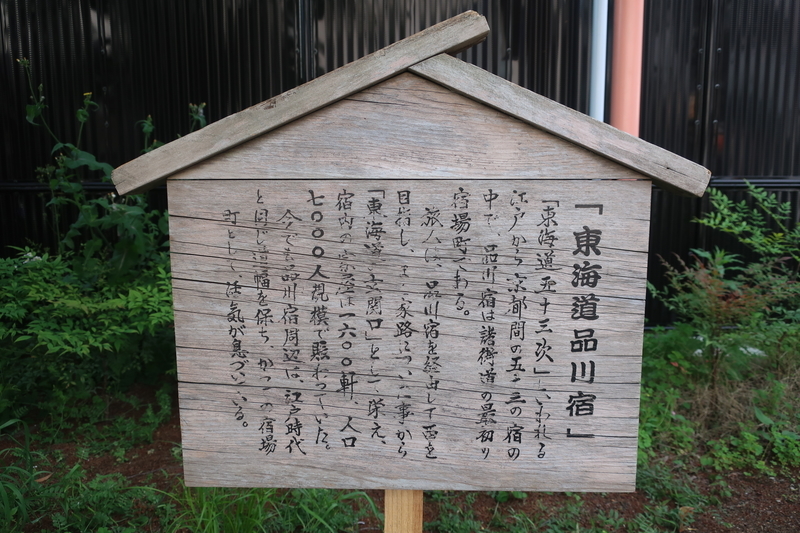 「東海道品川宿」
「東海道五十三次」といわれる
江戸から京都間の五十三の宿の
中で、品川宿は諸街道の最初の
宿場町である。
旅人は、品川宿を経由して西を
目指し、また家路についた事から
「東海道の玄関口」として栄え、
宿内の家並は一六〇〇軒、人口
七〇〇〇人規模で賑わっていた。
今でも品川宿周辺は、江戸時代
と同じ道幅を保ち、かつての宿場
町として、活気が息づいている。